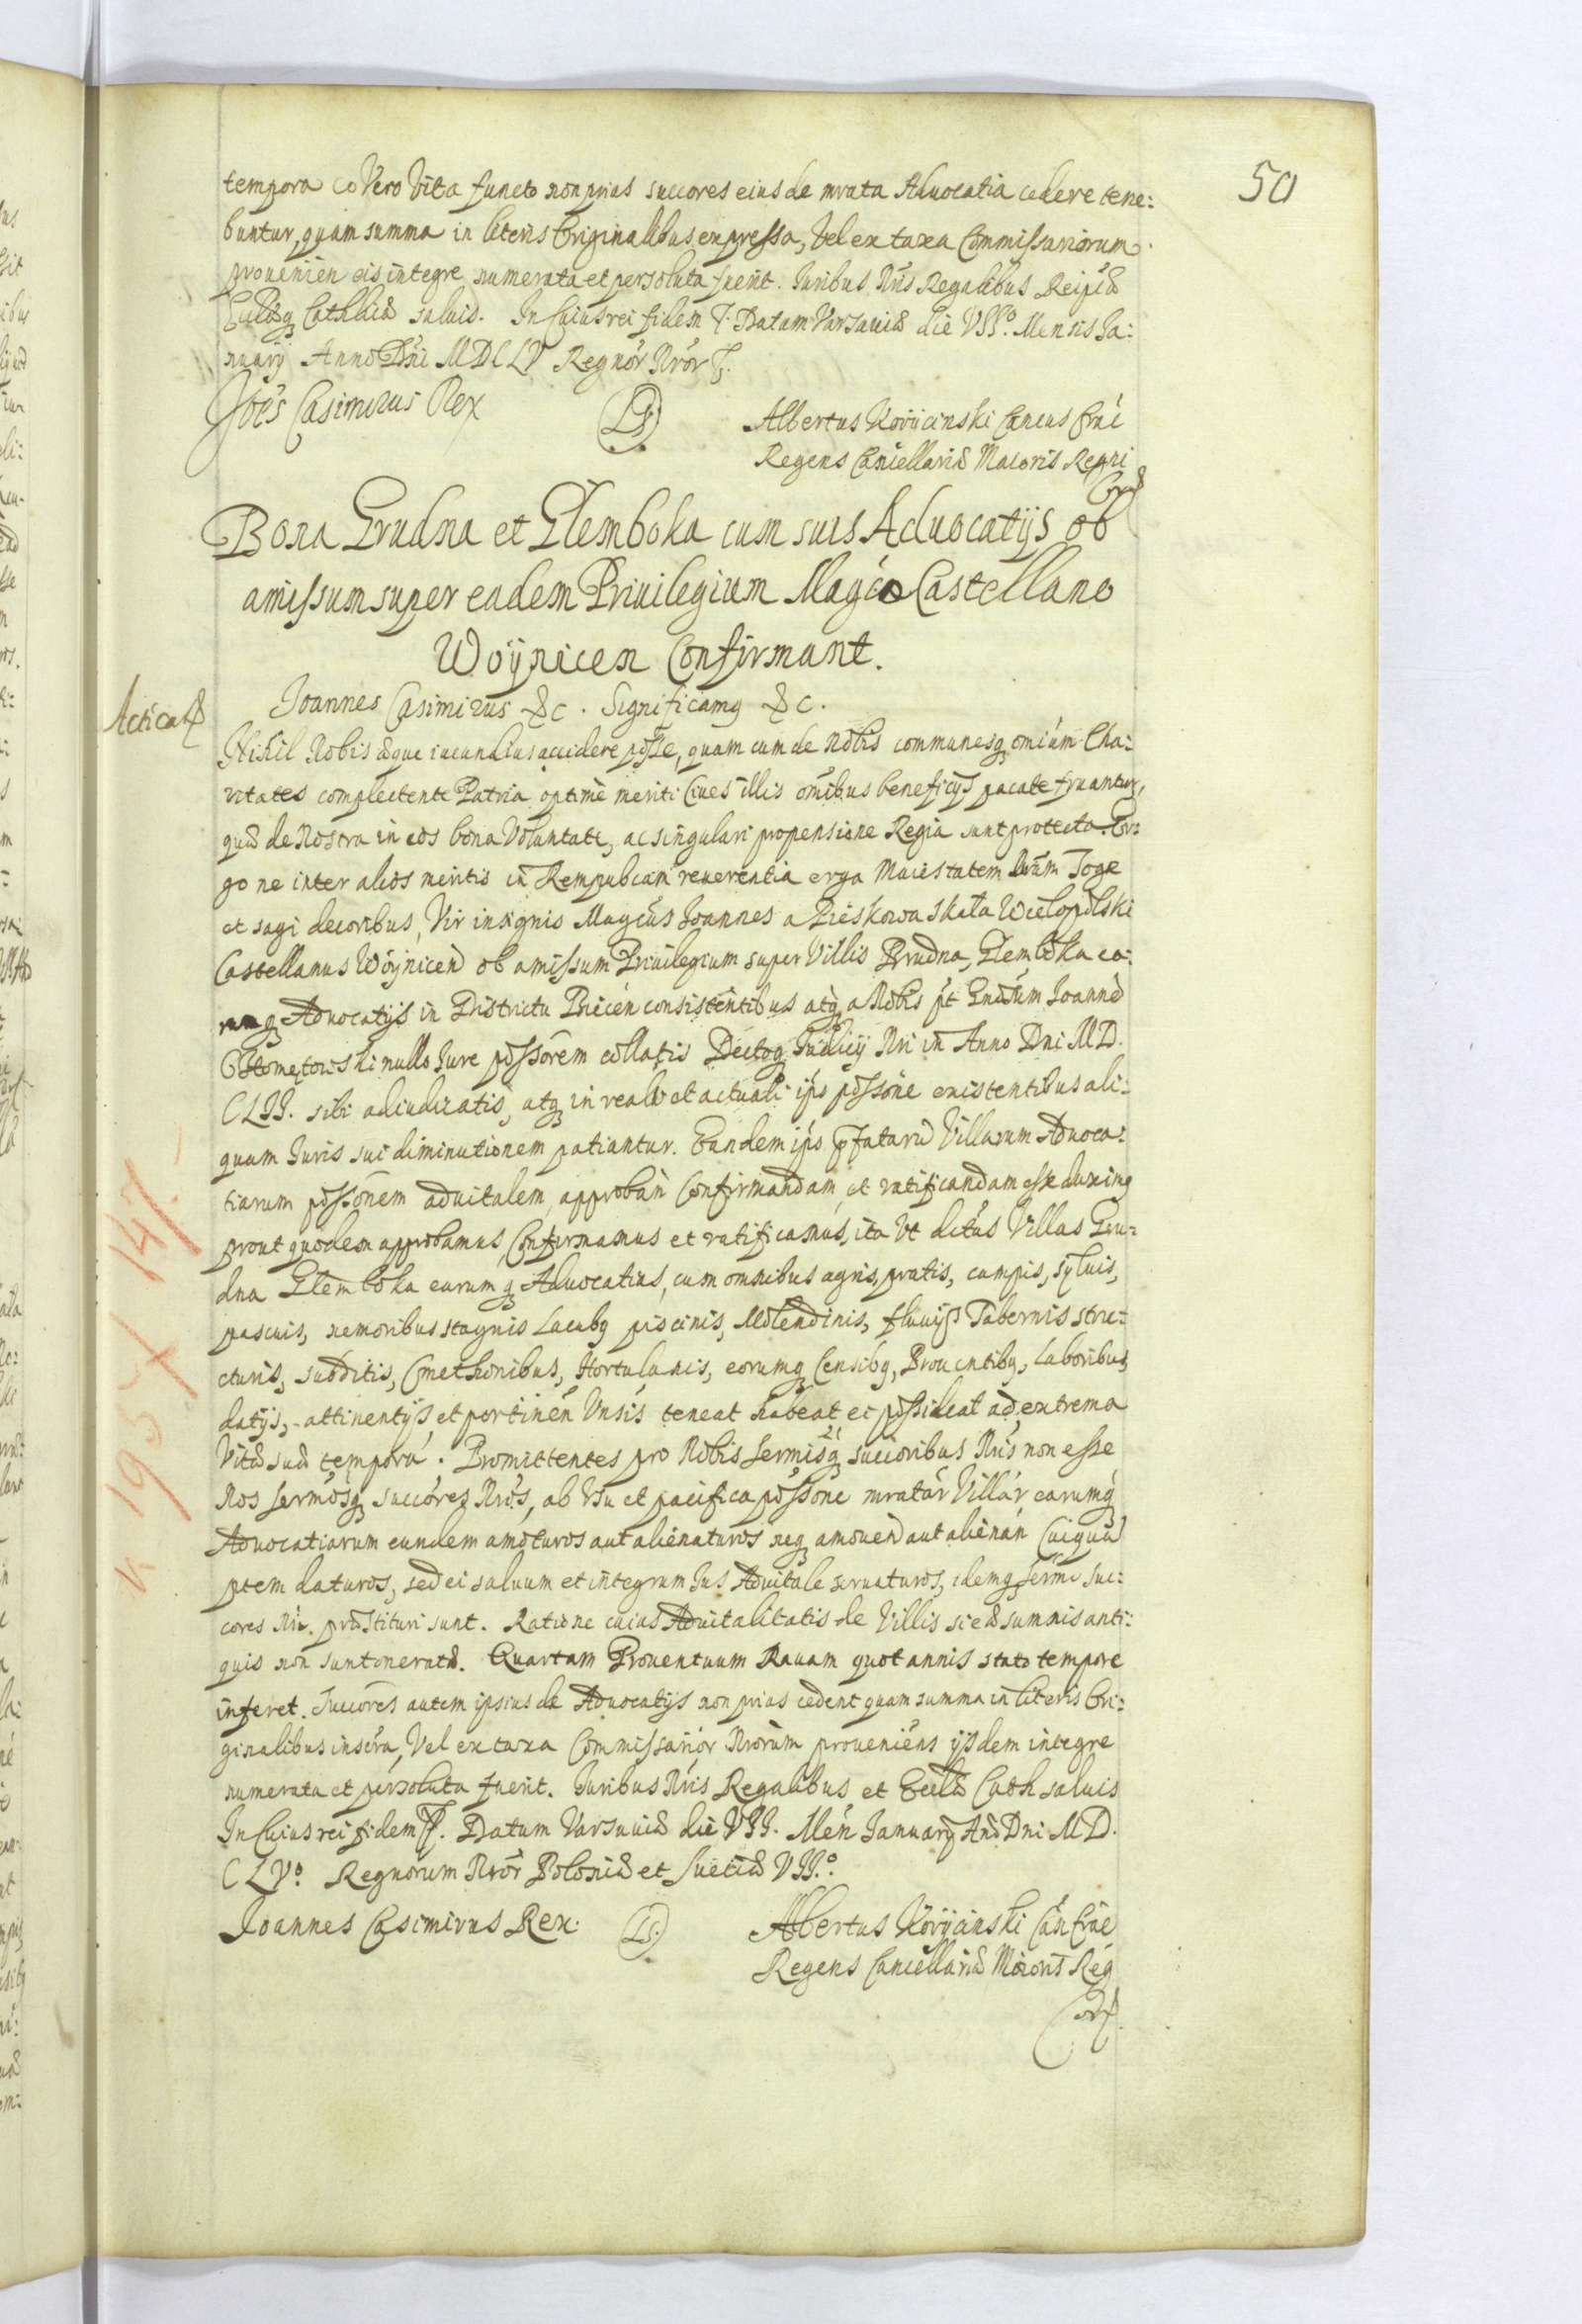 50
tempora eo Vero Vita functo non prius succores eius de mrata Aduocatia cedere tene:
buntur, quam summa in literis Originalibus expressa, Vel ex taxa Commissariorum
prouenien eis integre numerata et persoluta fuerit. Iuribus Nris Regalibus Reipub
Ecclaeq Cathlicae saluis. In Cuius rei fidem Datum Varsauiae die VII° Mensis Ia:
nuarij Anno Dni MDCLV Regnor Nror
Joes Casimirus Rex
LS
Albertus Korycinski Cancus Crac
Regens Cancellariae Maioris Regni
Bona Grudna et Glemboka cum suis Aduocatijs ob
amissum super eadem Priuilegium Magco Castellano
Woynicen Confirmant.
Acticat
Joannes Casimirus &c. Significamq &c.
Nihil Nobis aeque iucundius accidere posse, quam cum de Nobis communesq omium Cha:
ritates complectente Patria optime meriti Ciues illis omibus beneficijs pacate fruantur,
quae de Nostra in eos bona Voluntate, ac singulari propensione Regia sunt protecta. Er:
go ne inter alios meritis in Rempubcam reuerentia erga Maiestatem Nram Togae
et sagi decoribus, Vir insignis Magcus Joannes a Pieskowa Skała Wielopolski
Castellanus Woynicen ob amissum Priuilegium super Villis Grudna, Glemboka ea:
rumq Aduocatijs in Districtu Biecen consistentibus atq a Nobis pt Gnosum Joanne
nullo Iure possorem collatis Dectoq Iudicij Nri in Anno Dni MD.
CLII. sibi adiudicatis, atq in reali et actuali ips possone existentibus ali:
quam Iuris sui diminutionem patiantur. Eandem ips pfataru Villarum Aduoca:
tiarum possonem aduitalem, approban Confirmandam et ratificandam esse duximq
prout quidem approbamus, Confirmamus et ratificamus, ita Vt dictus Villas Gru:
dna Glemboka earumq Aduocatias, cum omnibus agris, pratis, campis, syluis,
pascuis, nemoribus stagnis Lacubq piscinis, Molendinis, fluuijs Tabernis stru:
cturis, subditis, Cmethonibus, Hortulanis, eorumq Censibq, Prouentibq, laboribus
datijs, attinentijs et pertinen Vnsis teneat habeat et possideat ad extrema
Vitae suae tempora. Promittentes pro Nobis Sermisq succoribus Nris non esse
Nos sermosq succores Nros, ab Vsu et pacifica possone mratar Villar earumq
Aduocatiarum eundem amoturos aut alienaturos neq amouen aut alienan Cuiquae
ptem daturos, sed ei saluum et integrum Ius Aduitale seruaturos, idemq sermi suc:
cores Nri praestituri sunt. Ratione cuius Aduitalitatis de Villis si eae summis anti:
quis non sunt oneratae. Quartam Prouentuum Rauam quot annis stato tempore
inferet. Succores autem ipsius de Aduocatijs non prius cedent quam summa in literis Ori:
ginalibus inserta, Vel ex taxa Commissarior Nrorum proueniens ijsdem integre
numerata et persoluta fuerit. Iuribus Nris Regalibus et Ecclae Cath saluis
In Cuius rei fidem. Datum Varsauiae die VII. Men Januarij Ano Dni MD.
CLV° Regnorum Nror Poloniae et Suetiae VII°.
Joannes Casimirus Rex.
LS.
Albertus Korycinski Can Crac
Regens Cancellariae Maioris Reg